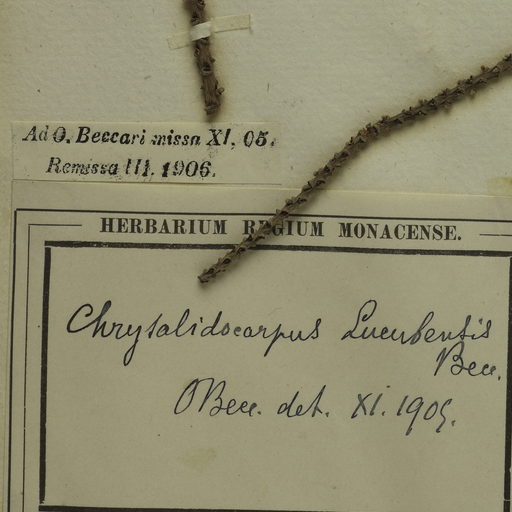 Ad O. Beccari missa XI. 05.
Remissa III. 1906.
HERBARIUM REGIUM MONACENSE.
Chrysalidocarpus Lucubensis
Becc.
OBecc. det. XI. 1905.